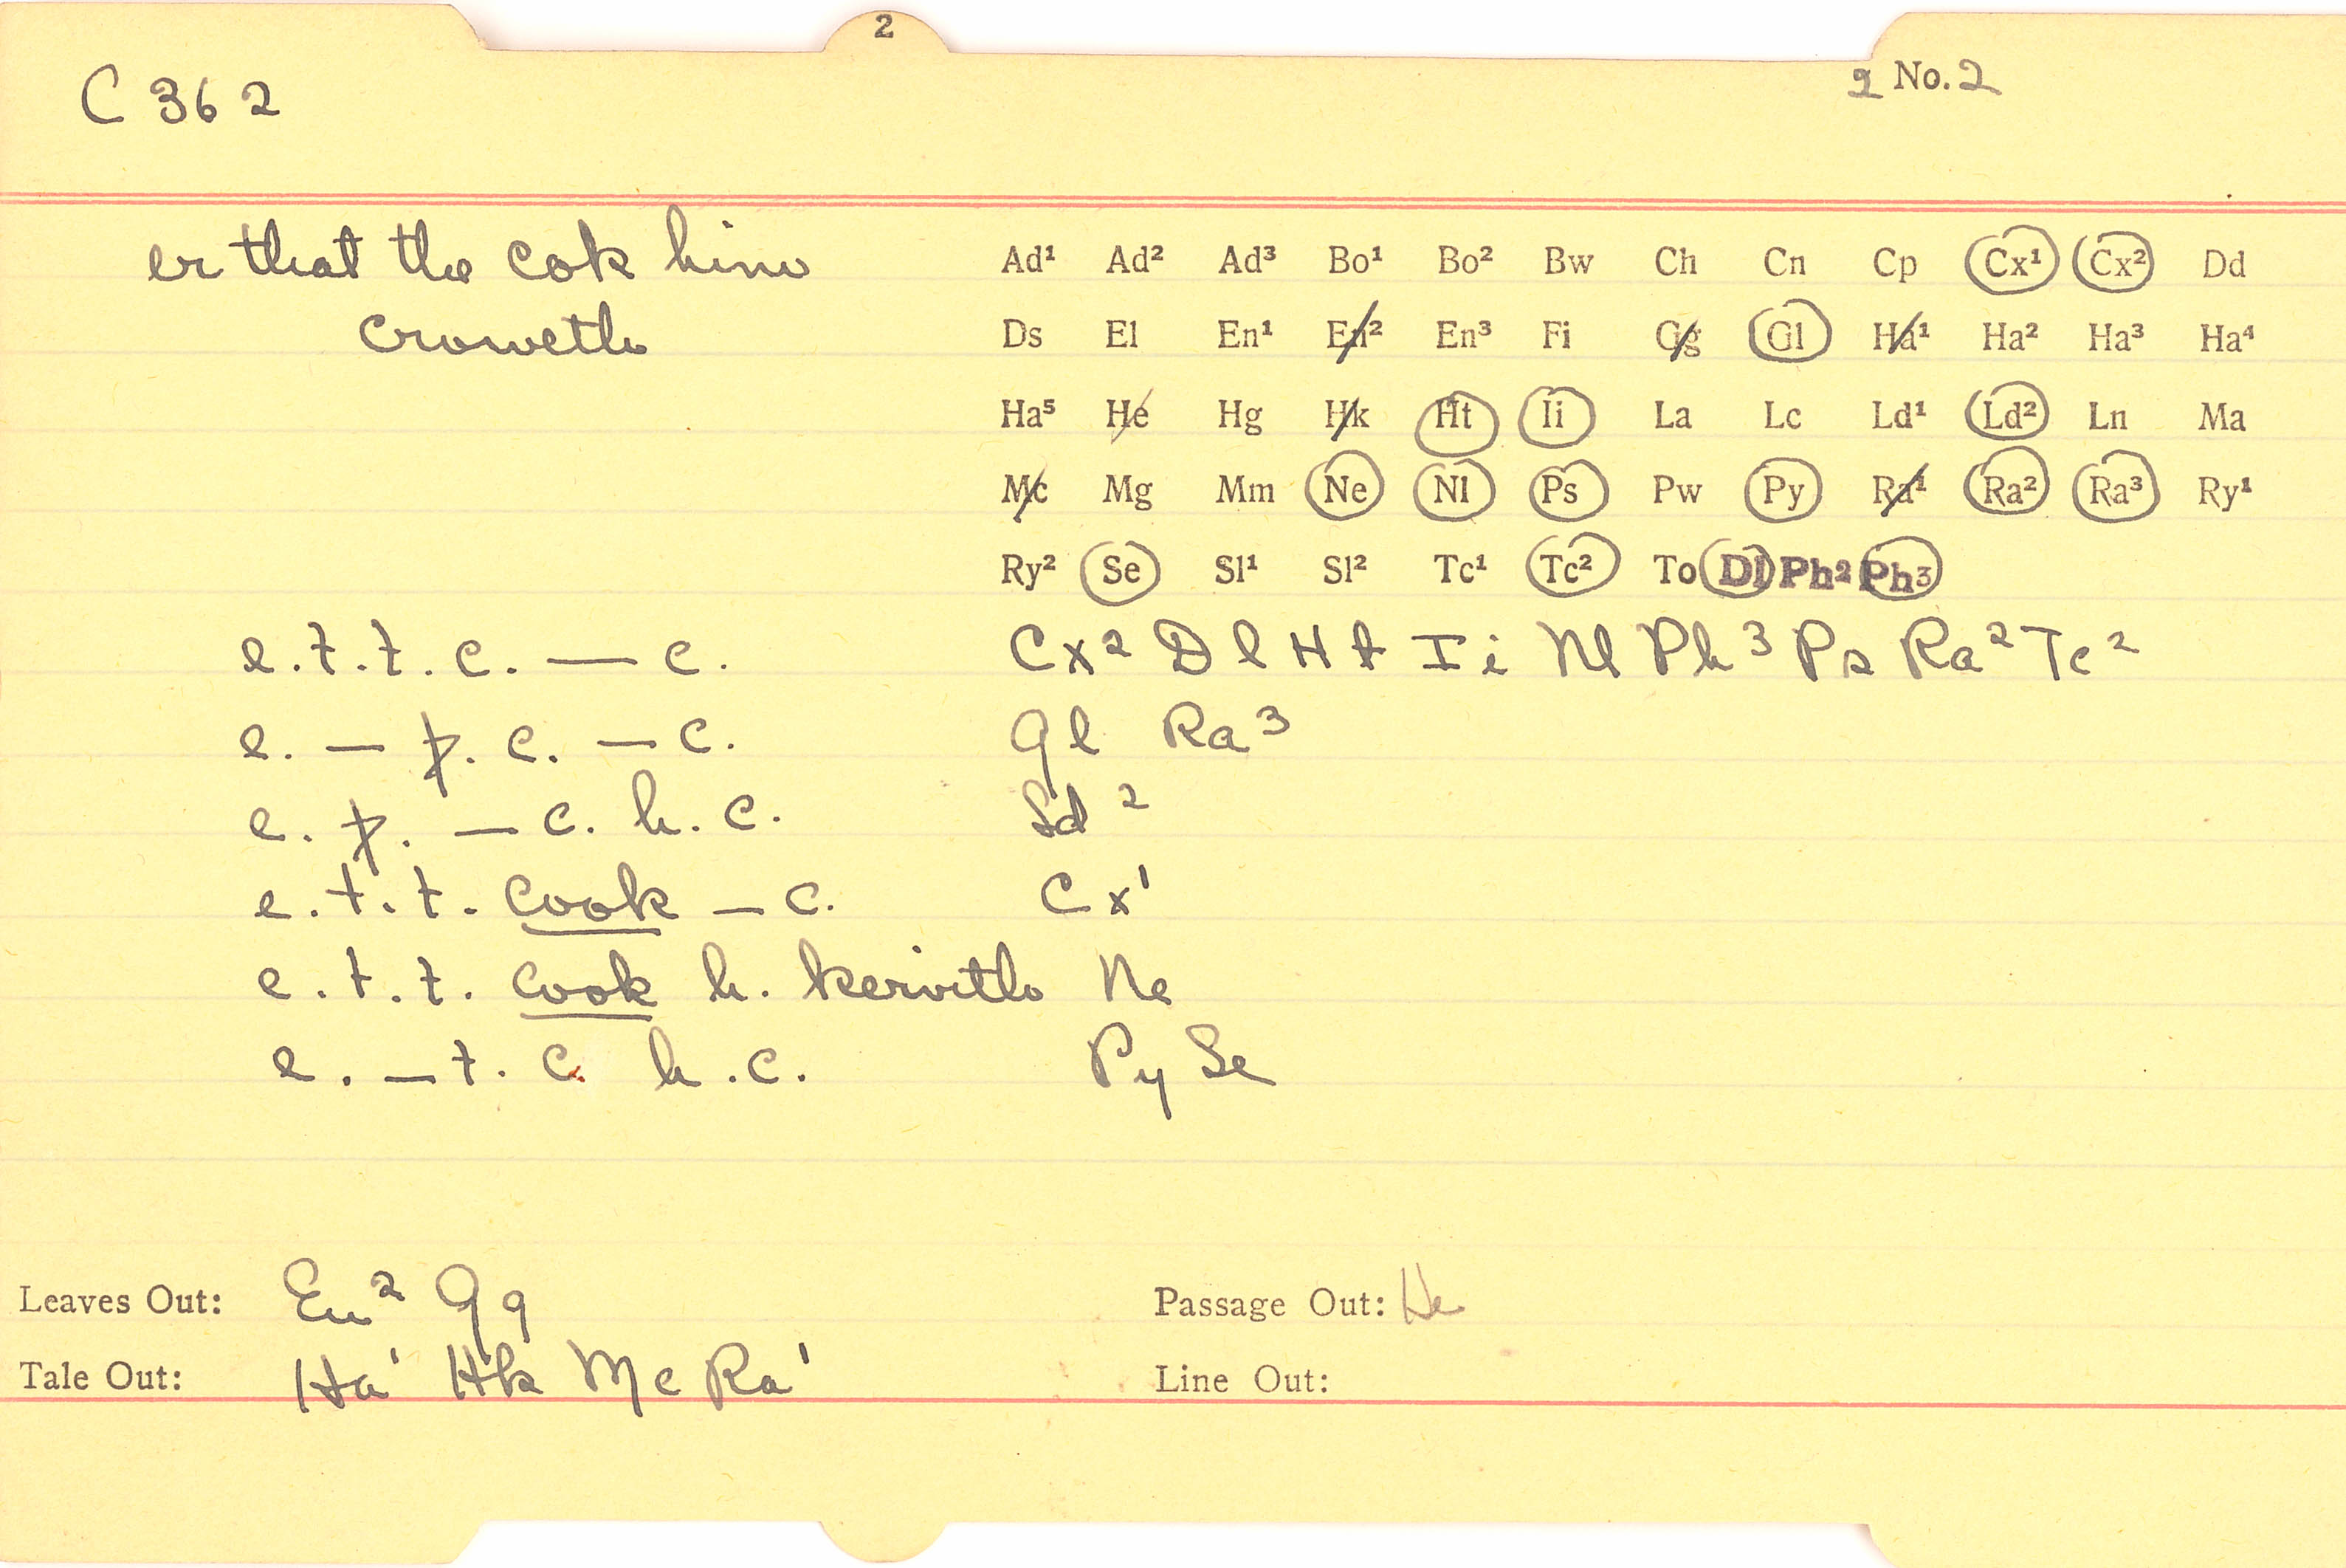 2
C 362
2 No. 2
er that the cok him
croweth
Ad¹ Ad² Ad³ Bo¹ Bo² Bw Ch Cn Cp Cx¹ Cx² Dd
Ds El En¹ En² En³ Fi Gg Gl Ha¹ Ha² Ha³ Ha⁴
Ha⁵ He Hg Hk Ht Ii La Lc Ld¹ Ld² Ln Ma
Mc Mg Mm Ne Nl Ps Pw Py Ra¹ Ra² Ra³ Ry¹
Ry² Se Sl¹ Sl² Tc¹ Tc² To Dl Ph² Ph3
e. t. t. c. — c. Cx² Dl Ht Ii Nl Ph³ Ps Ra² Tc²
e. — þ. c. — c. Gl Ra³
e. þ. — c. h. c. Ld²
e. t. t. cook — c. Cx¹
e. t. t. cook h. kervith Ne
e. — t. c. h. c. Py Se
Leaves Out: En² Gg
Passage Out: He
Tale Out: Ha¹ Hk Mc Ra¹
Line Out: